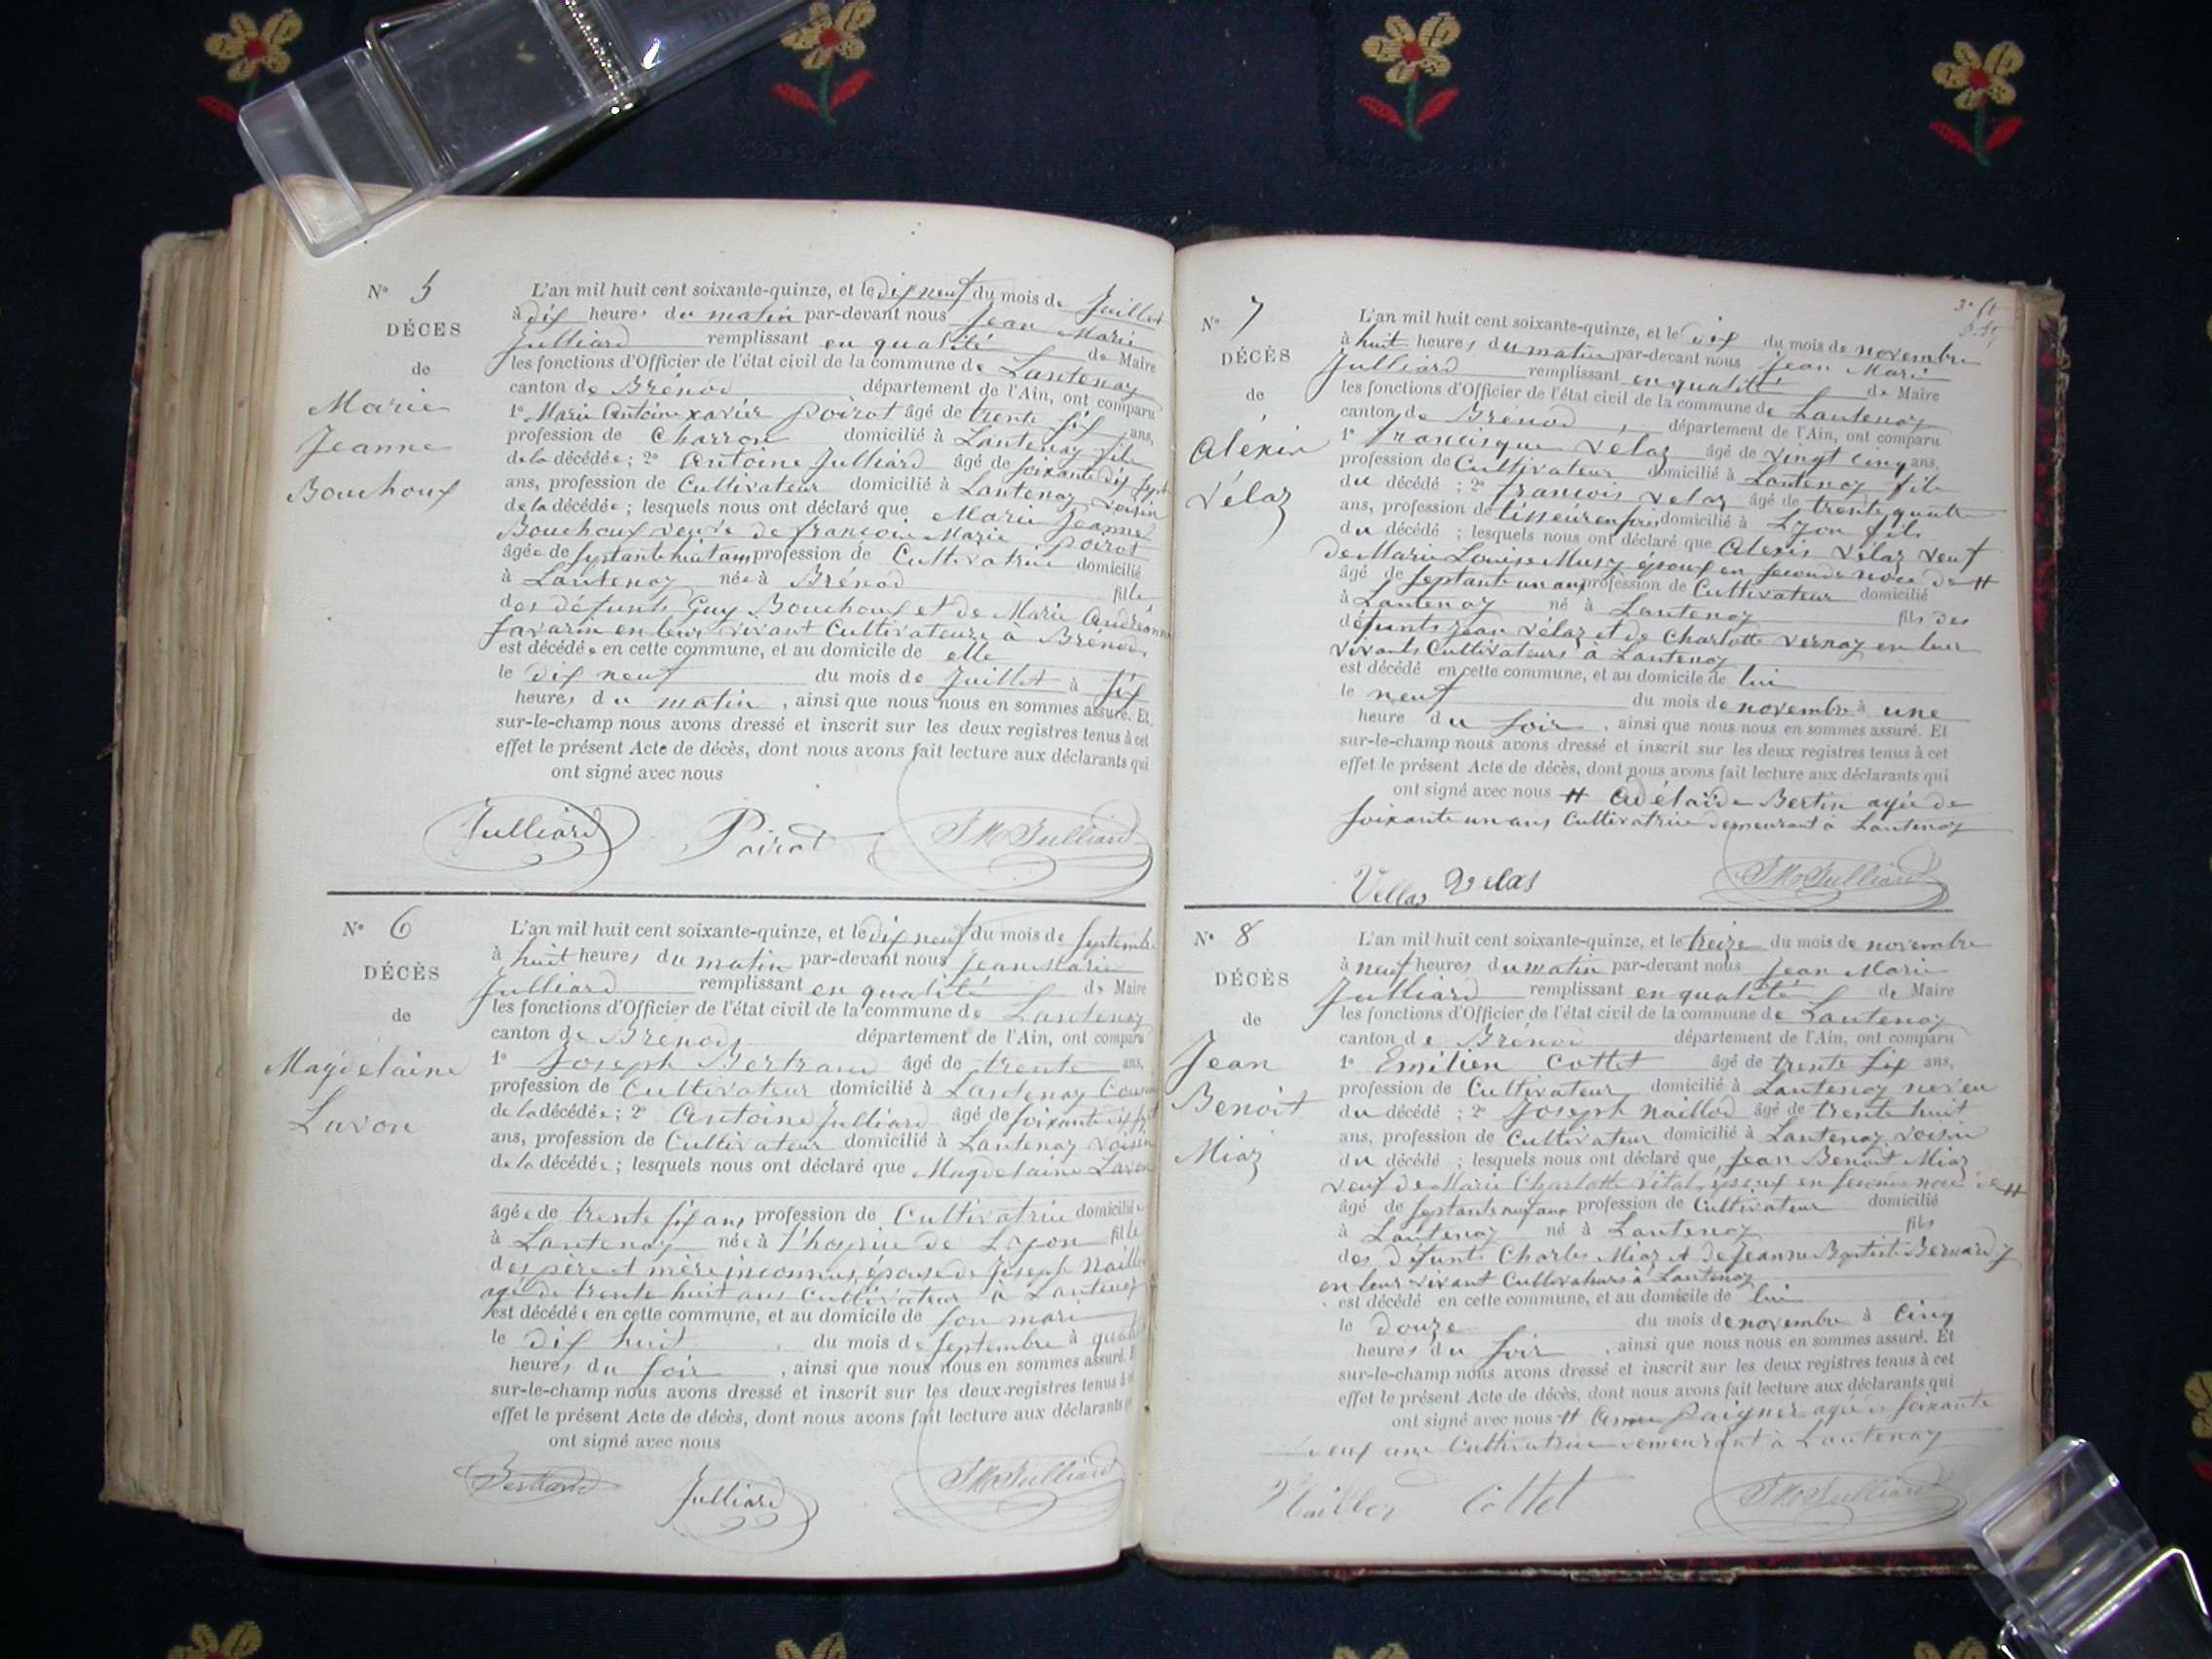 N° 5
DÉCES
de
Marie
Jeanne
Bouchoux
L'an mil huit cent soixante-quinze, et le dix neuf du mois de Juillet
à dix heures du matin par-devant nous Jean Marie
Julliard remplissant en qualité de Maire
les fonctions d'Officier de l'état civil de la commune de Lantenay
canton de Brénod département de l'Ain, ont comparu
1° Marie Antoine Xavier Poirot âgé de trente six ans,
profession de Charron domicilié à Lantenay fils
de la décédée ; 2° Antoine Julliard âgé de soixante dix sept
ans, profession de Cultivateur domicilié à Lantenay voisin
de la décédée ; lesquels nous ont déclaré que Marie Jeanne
Bouchoux veuve de françois Marie Poirot
âgée de septante huit ans profession de Cultivatrice domicilié
à Lantenay née à Brénod fille
des défunts Guy Bouchoux et de Marie
Savarin en leur vivant Cultivateurs à Brénod
est décédée en cette commune, et au domicile de elle
le dix neuf du mois de Juillet à six
heures du matin , ainsi que nous nous en sommes assuré. Et
sur-le-champ nous avons dressé et inscrit sur les deux registres tenus à cet
effet le présent Acte de décès, dont nous avons fait lecture aux déclarants qui
ont signé avec nous
Julliard Poirot JM Julliard
N° 6
DÉCÈS
de
Magdelaine
Lavon
L'an mil huit cent soixante-quinze, et le dix neuf du mois de Septembre
à huit heures du matin par-devant nous Jean Marie
Julliard remplissant en qualité de Maire
les fonctions d'Officier de l'état civil de la commune de Lantenay
canton de Brénod département de l'Ain, ont comparu
1° Joseph Bertrand âgé de trente ans,
profession de Cultivateur domicilié à Lantenay
de la décédée ; 2° Antoine Julliard âgé de soixante dix sept
ans, profession de Cultivateur domicilié à Lantenay voisin
de la décédée ; lesquels nous ont déclaré que Magdelaine Lavon
âgée de trente six ans profession de Cultivatrice domicilié
à Lantenay née à l'hospice de Lyon fille
des père et mère inconnus, épouse de Joseph Naillod
agé de trente huit ans Cultivateur à Lantenay
est décédée en cette commune, et au domicile de son mari
le dix huit du mois de Septembre à quatre
heures du soir , ainsi que nous nous en sommes assuré. Et
sur-le-champ nous avons dressé et inscrit sur les deux registres tenus à
effet le présent Acte de décès, dont nous avons fait lecture aux déclarants
ont signé avec nous
Bertrand Julliard JM Julliard
N° 7
DÉCÈS
de
Alexis
Vélaz
L'an mil huit cent soixante-quinze, et le dix du mois de novembre
à huit heures du matin par-devant nous Jean Marie
Julliard remplissant en qualité de Maire
les fonctions d'Officier de l'état civil de la commune de Lantenay
canton de Brénod , département de l'Ain, ont comparu
1° Francisque Velaz âgé de vingt cinq ans,
profession de Cultivateur domicilié à Lantenay fils
du décédé ; 2° françois Velaz âgé de trente quatre
ans, profession de tisseur en soie domicilié à Lyon fils
du décédé ; lesquels nous ont déclaré que Alexis Vélaz veuf
de Marie Louise Musy époux en seconde noce de #
âgé de septante un ans profession de Cultivateur domicilié
à Lantenay né à Lantenay fils des
défunts Jean Vélaz et de Charlotte Vernay en leur
vivants Cultivateurs à Lantenay
est décédé en cette commune, et au domicile de lui
le neuf du mois de novembre à une
heure du soir , ainsi que nous nous en sommes assuré. Et
sur-le-champ nous avons dressé et inscrit sur les deux registres tenus à cet
effet le présent Acte de décès, dont nous avons fait lecture aux déclarants qui
ont signé avec nous # Adélaïde Bertin agée de
soixante un ans Cultivatrice demeurant à Lantenay
Vellas Velas JM Julliard
N° 8
DÉCÈS
de
Jean
Benoit
Miaz
L'an mil huit cent soixante-quinze, et le treize du mois de novembre
à neuf heures du matin par-devant nous Jean Marie
Julliard remplissant en qualité de Maire
les fonctions d'Officier de l'état civil de la commune de Lantenay
canton de Brénod département de l'Ain, ont comparu
1° Emilien Cottet âgé de trente six ans,
profession de Cultivateur domicilié à Lantenay neveu
du décédé ; 2° Joseph Naillod âgé de trente huit
ans, profession de Cultivateur domicilié à Lantenay voisin
du décédé ; lesquels nous ont déclaré que Jean Benoit Miaz
veuf de Marie Charlotte Vital, époux en seconde noce de #
âgé de septante neuf ans profession de Cultivateur domicilié
à Lantenay né à Lantenay fils
des défunts Charles Miaz et de Jeanne Baptiste Bernardy
en leur vivant Cultivateurs à Lantenay
est décédé en cette commune, et au domicile de lui
le douze du mois de novembre à cinq
heures du soir , ainsi que nous nous en sommes assuré. Et
sur-le-champ nous avons dressé et inscrit sur les deux registres tenus à cet
effet le présent Acte de décès, dont nous avons fait lecture aux déclarants qui
ont signé avec nous # agée de soixante
neuf ans Cultivatrice demeurant à Lantenay
Naillod Cottet JM Julliard